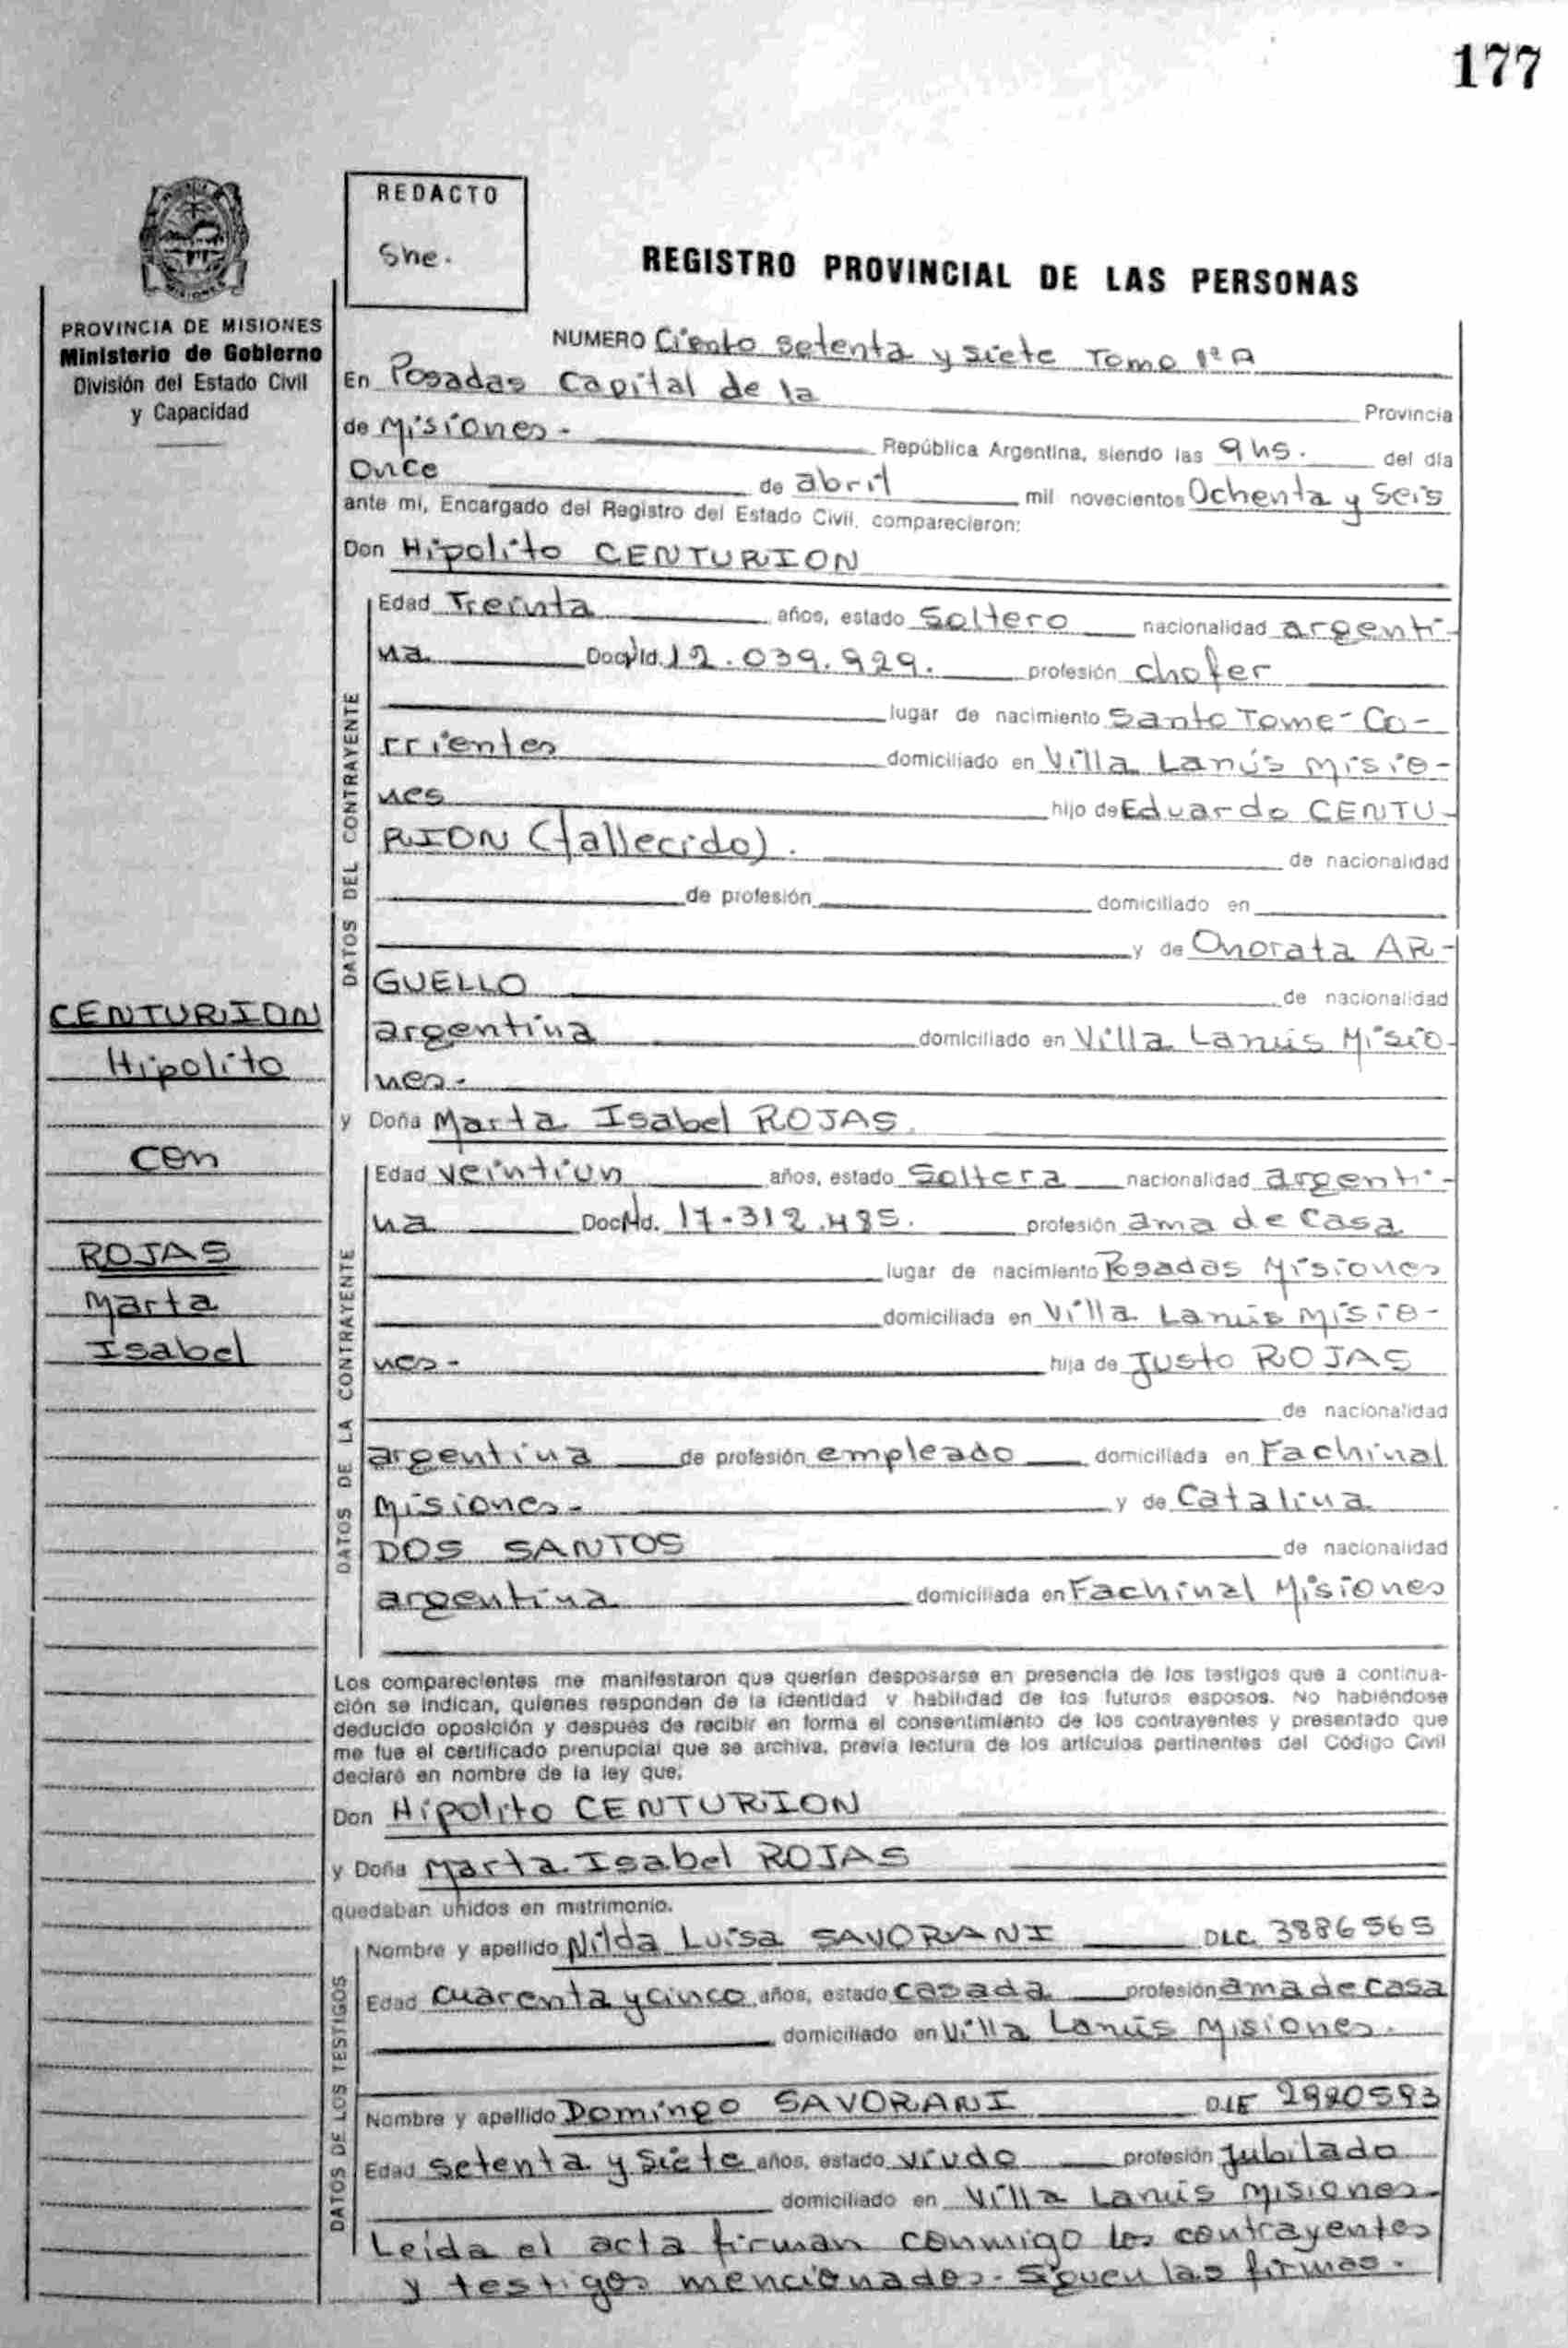 177
REDACTO
She.
REGISTRO PROVINCIAL DE LAS PERSONAS
MISIONES
PROVINCIA DE MISIONES
Ministerio de Gobierno
División del Estado Civil
y Capacidad
NUMERO Ciento setenta y siete Tomo 1º A
En Posadas Capital de la Provincia
de Misiones - República Argentina, siendo las 9 hs. del día
Once de abril mil novecientos Ochenta y Seis
ante mi, Encargado del Registro del Estado Civil, comparecieron:
Don Hipolito CENTURION
DATOS DEL CONTRAYENTE
Edad Treinta años, estado Soltero nacionalidad argenti-
na Doc. Id. 12.039.929. profesión chofer
lugar de nacimiento Santo Tome - Co-
rrientes domiciliado en Villa Lanús Misio-
nes hijo de Eduardo CENTU-
RION (fallecido). de nacionalidad
de profesión domiciliado en
y de Onorata AR-
GUELLO de nacionalidad
argentina domiciliado en Villa Lanús Misio-
nes.-
y Doña Marta Isabel ROJAS.
DATOS DE LA CONTRAYENTE
Edad veintiun años, estado Soltera nacionalidad argenti-
na Doc. Id. 17.312.485. profesión ama de Casa
lugar de nacimiento Posadas Misiones
domiciliada en Villa Lanús Misio-
nes - hija de Justo ROJAS
de nacionalidad
argentina de profesión empleado domiciliada en Fachinal
Misiones - y de Catalina
DOS SANTOS de nacionalidad
argentina domiciliada en Fachinal Misiones
CENTURION
Hipolito
con
ROJAS
Marta
Isabel
Los comparecientes me manifestaron que querían desposarse en presencia de los testigos que a continua-
ción se indican, quienes responden de la identidad y habilidad de los futuros esposos. No habiéndose
deducido oposición y después de recibir en forma el consentimiento de los contrayentes y presentado que
me fue el certificado prenupcial que se archiva, previa lectura de los artículos pertinentes del Código Civil
declaré en nombre de la ley que:
Don Hipolito CENTURION
y Doña Marta Isabel ROJAS
quedaban unidos en matrimonio.
DATOS DE LOS TESTIGOS
Nombre y apellido Nilda Luisa SAVORANI DLC. 3886565
Edad Cuarenta y cinco años, estado casada profesión ama de casa
domiciliado en Villa Lanús Misiones.
Nombre y apellido Domingo SAVORANI DLE 2920593
Edad Setenta y Siete años, estado viudo profesión Jubilado
domiciliado en Villa Lanús Misiones
Leída el acta firman conmigo los contrayentes
y testigos mencionados. Siguen las firmas.